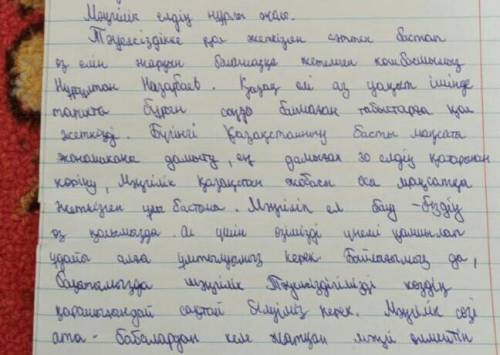 Мәңгілік елдің нұрлы жолы.
Тәуелсіздікке қол жеткізген сәттен бастап
өз елін жарқын болашаққа жетелеген көшбасшымыз
Нұрсұлтан Назарбаев. Қазақ елі аз уақыт ішінде
тарихта бұрын соңды болмаған табыстарға қол
жеткізді. Бүгінгі Қазақстанның басты мақсаты
экономикоча дамыту, ең дамыған 30 елдің қатарынан
көріну, Мәңгілік Қазақстан жобасы осы мақсатқа
жеткізген ұлы бастама. Мәңгілік ел болу - біздің
өз қолымызда. Ол үшін өзімізді үнемі қамшылап
ұдайы алға ұмтылуымыз керек. Байлығымыз да,
бақытымызда мәңгілік Тәуелсіздігімізді көздің
қарашығындай сақтай білуіміз керек. Мәңгілік сөзі
ата-бабалардан келе жатқан мәңгі өлмейтін